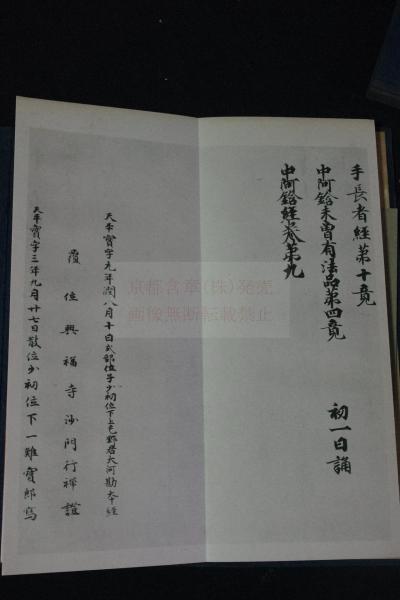 手長者經第十竟
中阿鋡未曾有法品第四竟 初一日誦
中阿鋡經卷第九
天平寶字元年潤八月十日式部位子少初位下上毛野君大河勘本經
復位興福寺沙門行禅證
天平寶字三年九月廿七日散位少初位下一難寶郎寫
京都含章(株)発売
画像無断転載禁止